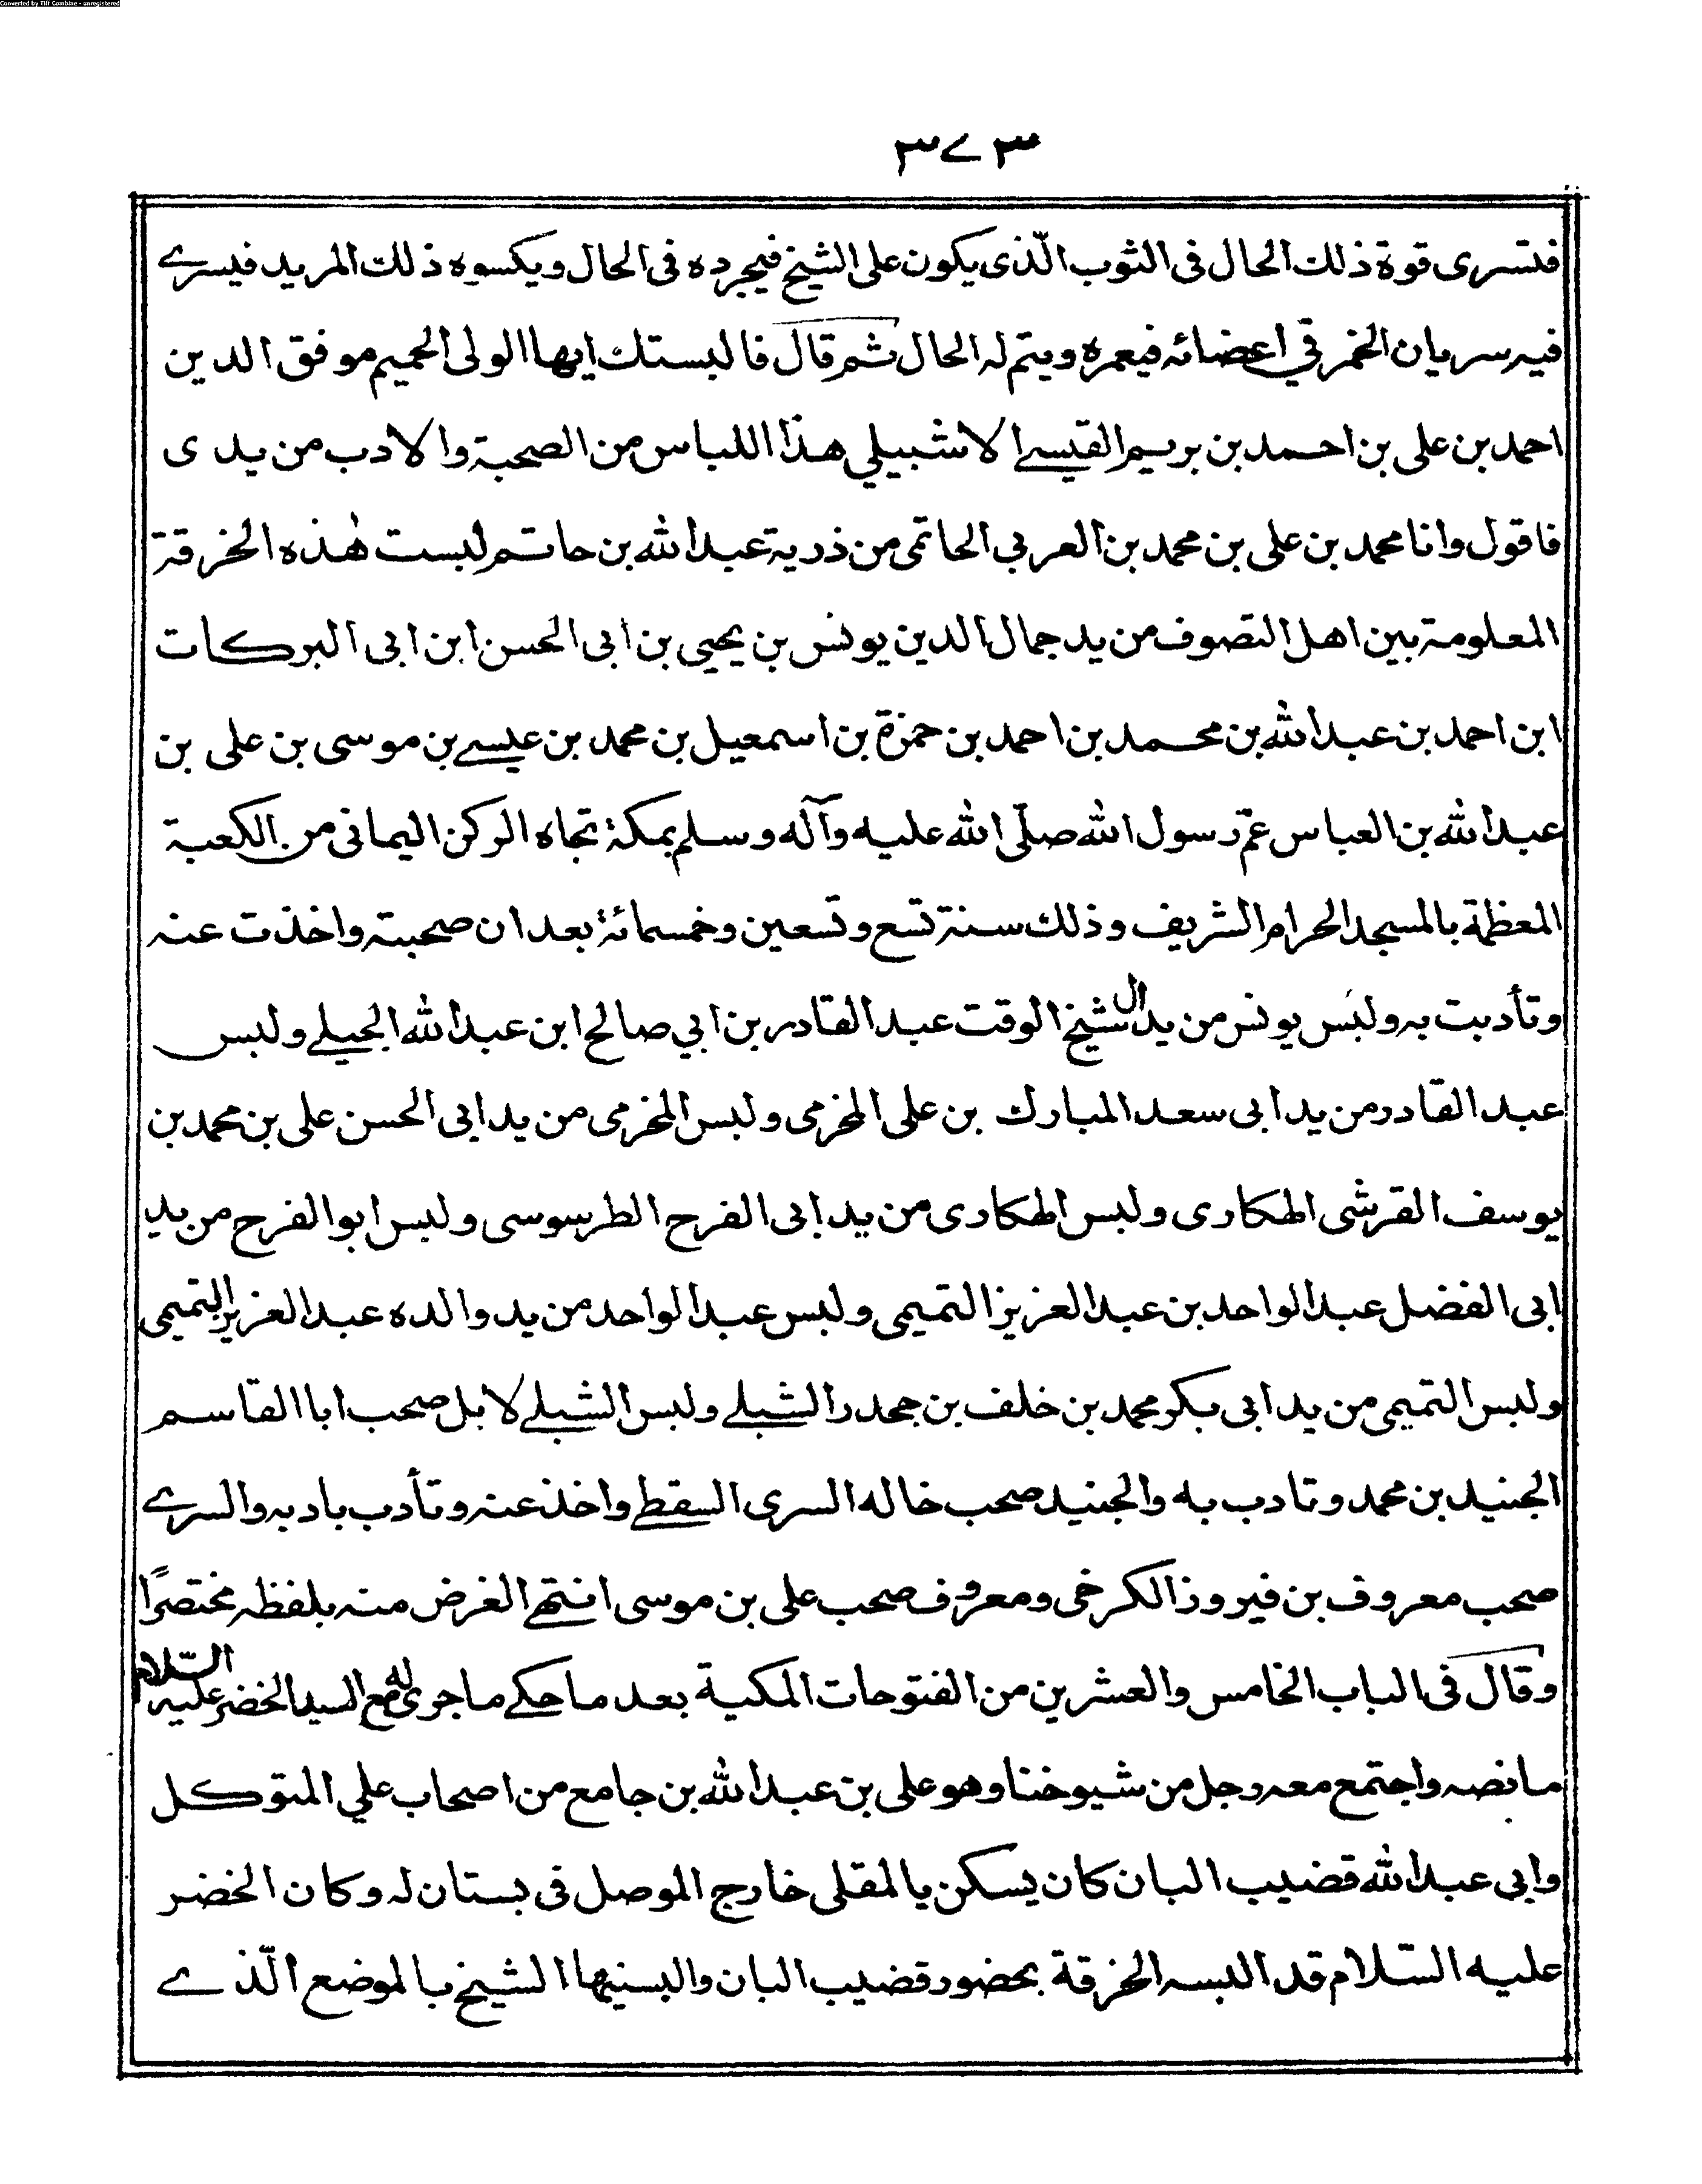 Converted by Tiff Combine - unregistered
٣٧٣
فتسرى قوة ذلك الحال فى الثوب الّذى يكون على الشيخ فيجرده فى الحال ويكسوه ذلك المريد فيسرے
فيه سريان الخمر في اعضائه فيعمره ويتم له الحال ثم قال فالبستك ايها الولى الحميم موفق الدين
احمد بن على بن احمد بن بريم القيسے الاشبيلي هذا اللباس من الصحبة والادب من يدى
فاقول وانا محمد بن على بن محمد بن العربى الحاتمى من ذرية عبد الله بن حاتم لبست هٰذه الخرقة
المعلومة بين اهل التصوف من يد جمال الدين يونس بن يحيى بن ابى الحسن ابن ابى البركات
ابن احمد بن عبد الله بن محمد بن احمد بن حمزة بن اسمعيل بن محمد بن عيسے بن موسى بن على بن
عبد الله بن العباس عمّ رسول الله صلّى الله عليه وآله وسلم بمكة تجاه الركن اليمانى من الكعبة
المعظمة بالمسجد الحرام الشريف وذلك سنة تسع وتسعين وخمسمائة بعد ان صحبته واخذت عنه
وتأدبت به ولبس يونس من يد الشيخ الوقت عبد القادر بن ابي صالح ابن عبد الله الجيلے ولبس
عبد القادر من يد ابى سعد المبارك بن على المخزمى ولبس المخزمى من يد ابى الحسن على بن محمد بن
يوسف القرشى الهكارى ولبس الهكارى من يد ابى الفرح الطرسوسى ولبس ابو الفرح من يد
ابى الفضل عبد الواحد بن عبد العزيز التميمى ولبس عبد الواحد من يد والده عبد العزيز التميمى
ولبس التميمى من يد ابى بكر محمد بن خلف بن جحدر الشبلے ولبس الشبلے لا بل صحب ابا القاسم
الجنيد بن محمد وتادب به والجنيد صحب خاله السرى السقطے واخذ عنه وتأدب بادبه والسرے
صحب معروف بن فيروز الكرخى ومعروف صحب على بن موسى انتهے الغرض منه بلفظه مختصرًا
وقال فى الباب الخامس والعشرين من الفتوحات المكية بعد ما حكے ما جرى له مع السيد الخضر عليه السّلام
ما نصه واجتمع معه رجل من شيوخنا وهو على بن عبد الله بن جامع من اصحاب علي المتوكل
وابى عبد الله قضيب البان كان يسكن بالمقلى خارج الموصل فى بستان له وكان الخضر
عليه السّلام قد البسه الخرقة بحضور قضيب البان والبسنيها الشيخ بالموضع الّذے